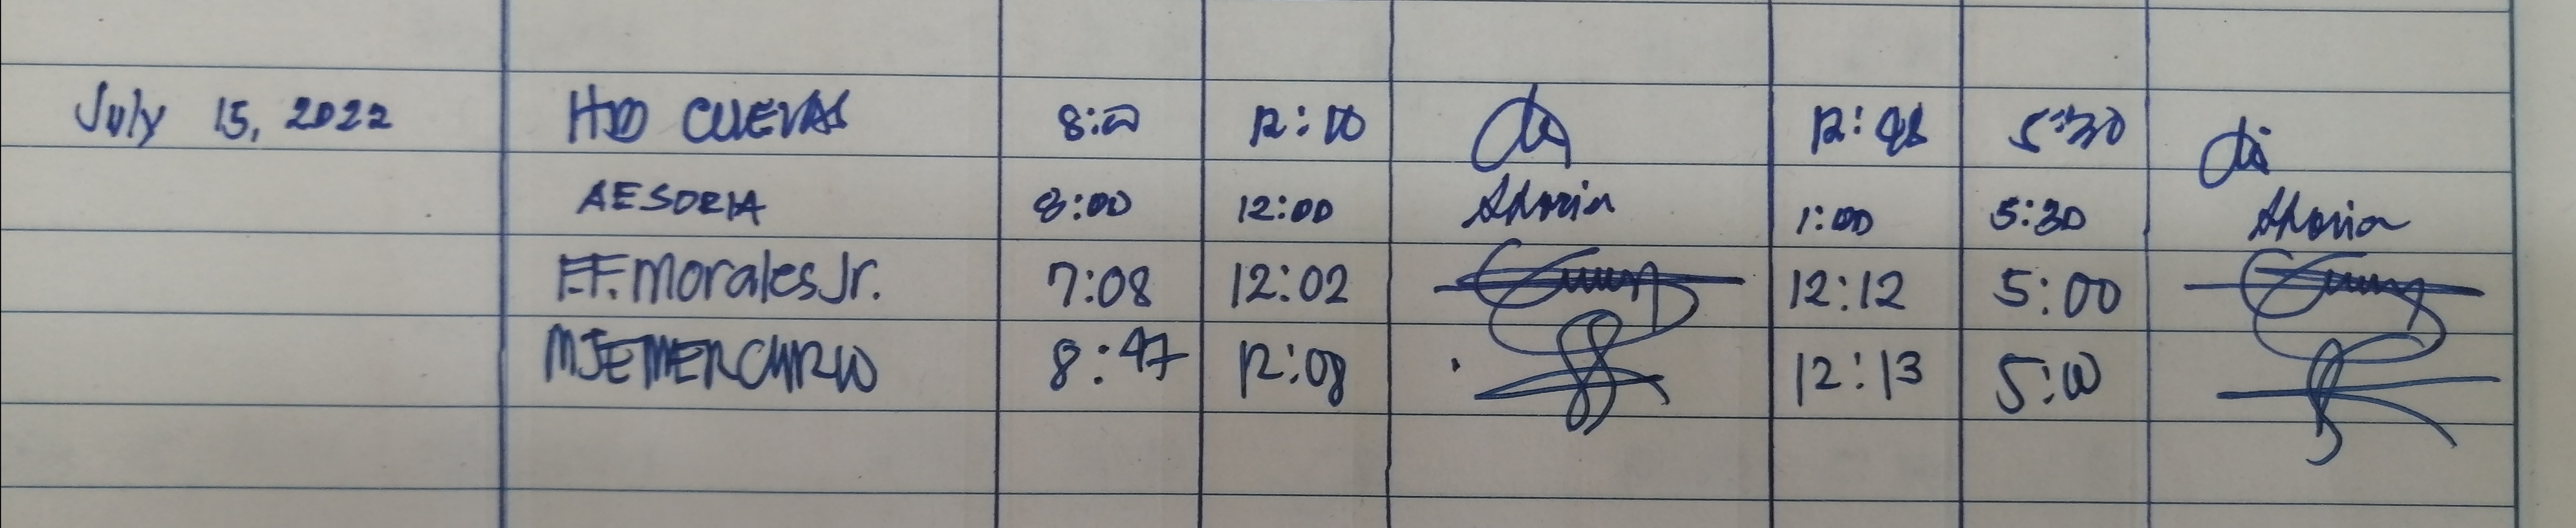 July 15, 2022 HJD CUEVAS 8:00 12:10 12:48 5:30
AESORIA 8:00 12:00 ASoria 1:00 5:30 ASoria
E.F. Morales Jr. 7:08 12:02 12:12 5:00
MJEMERCURIO 8:47 12:08 12:13 5:00